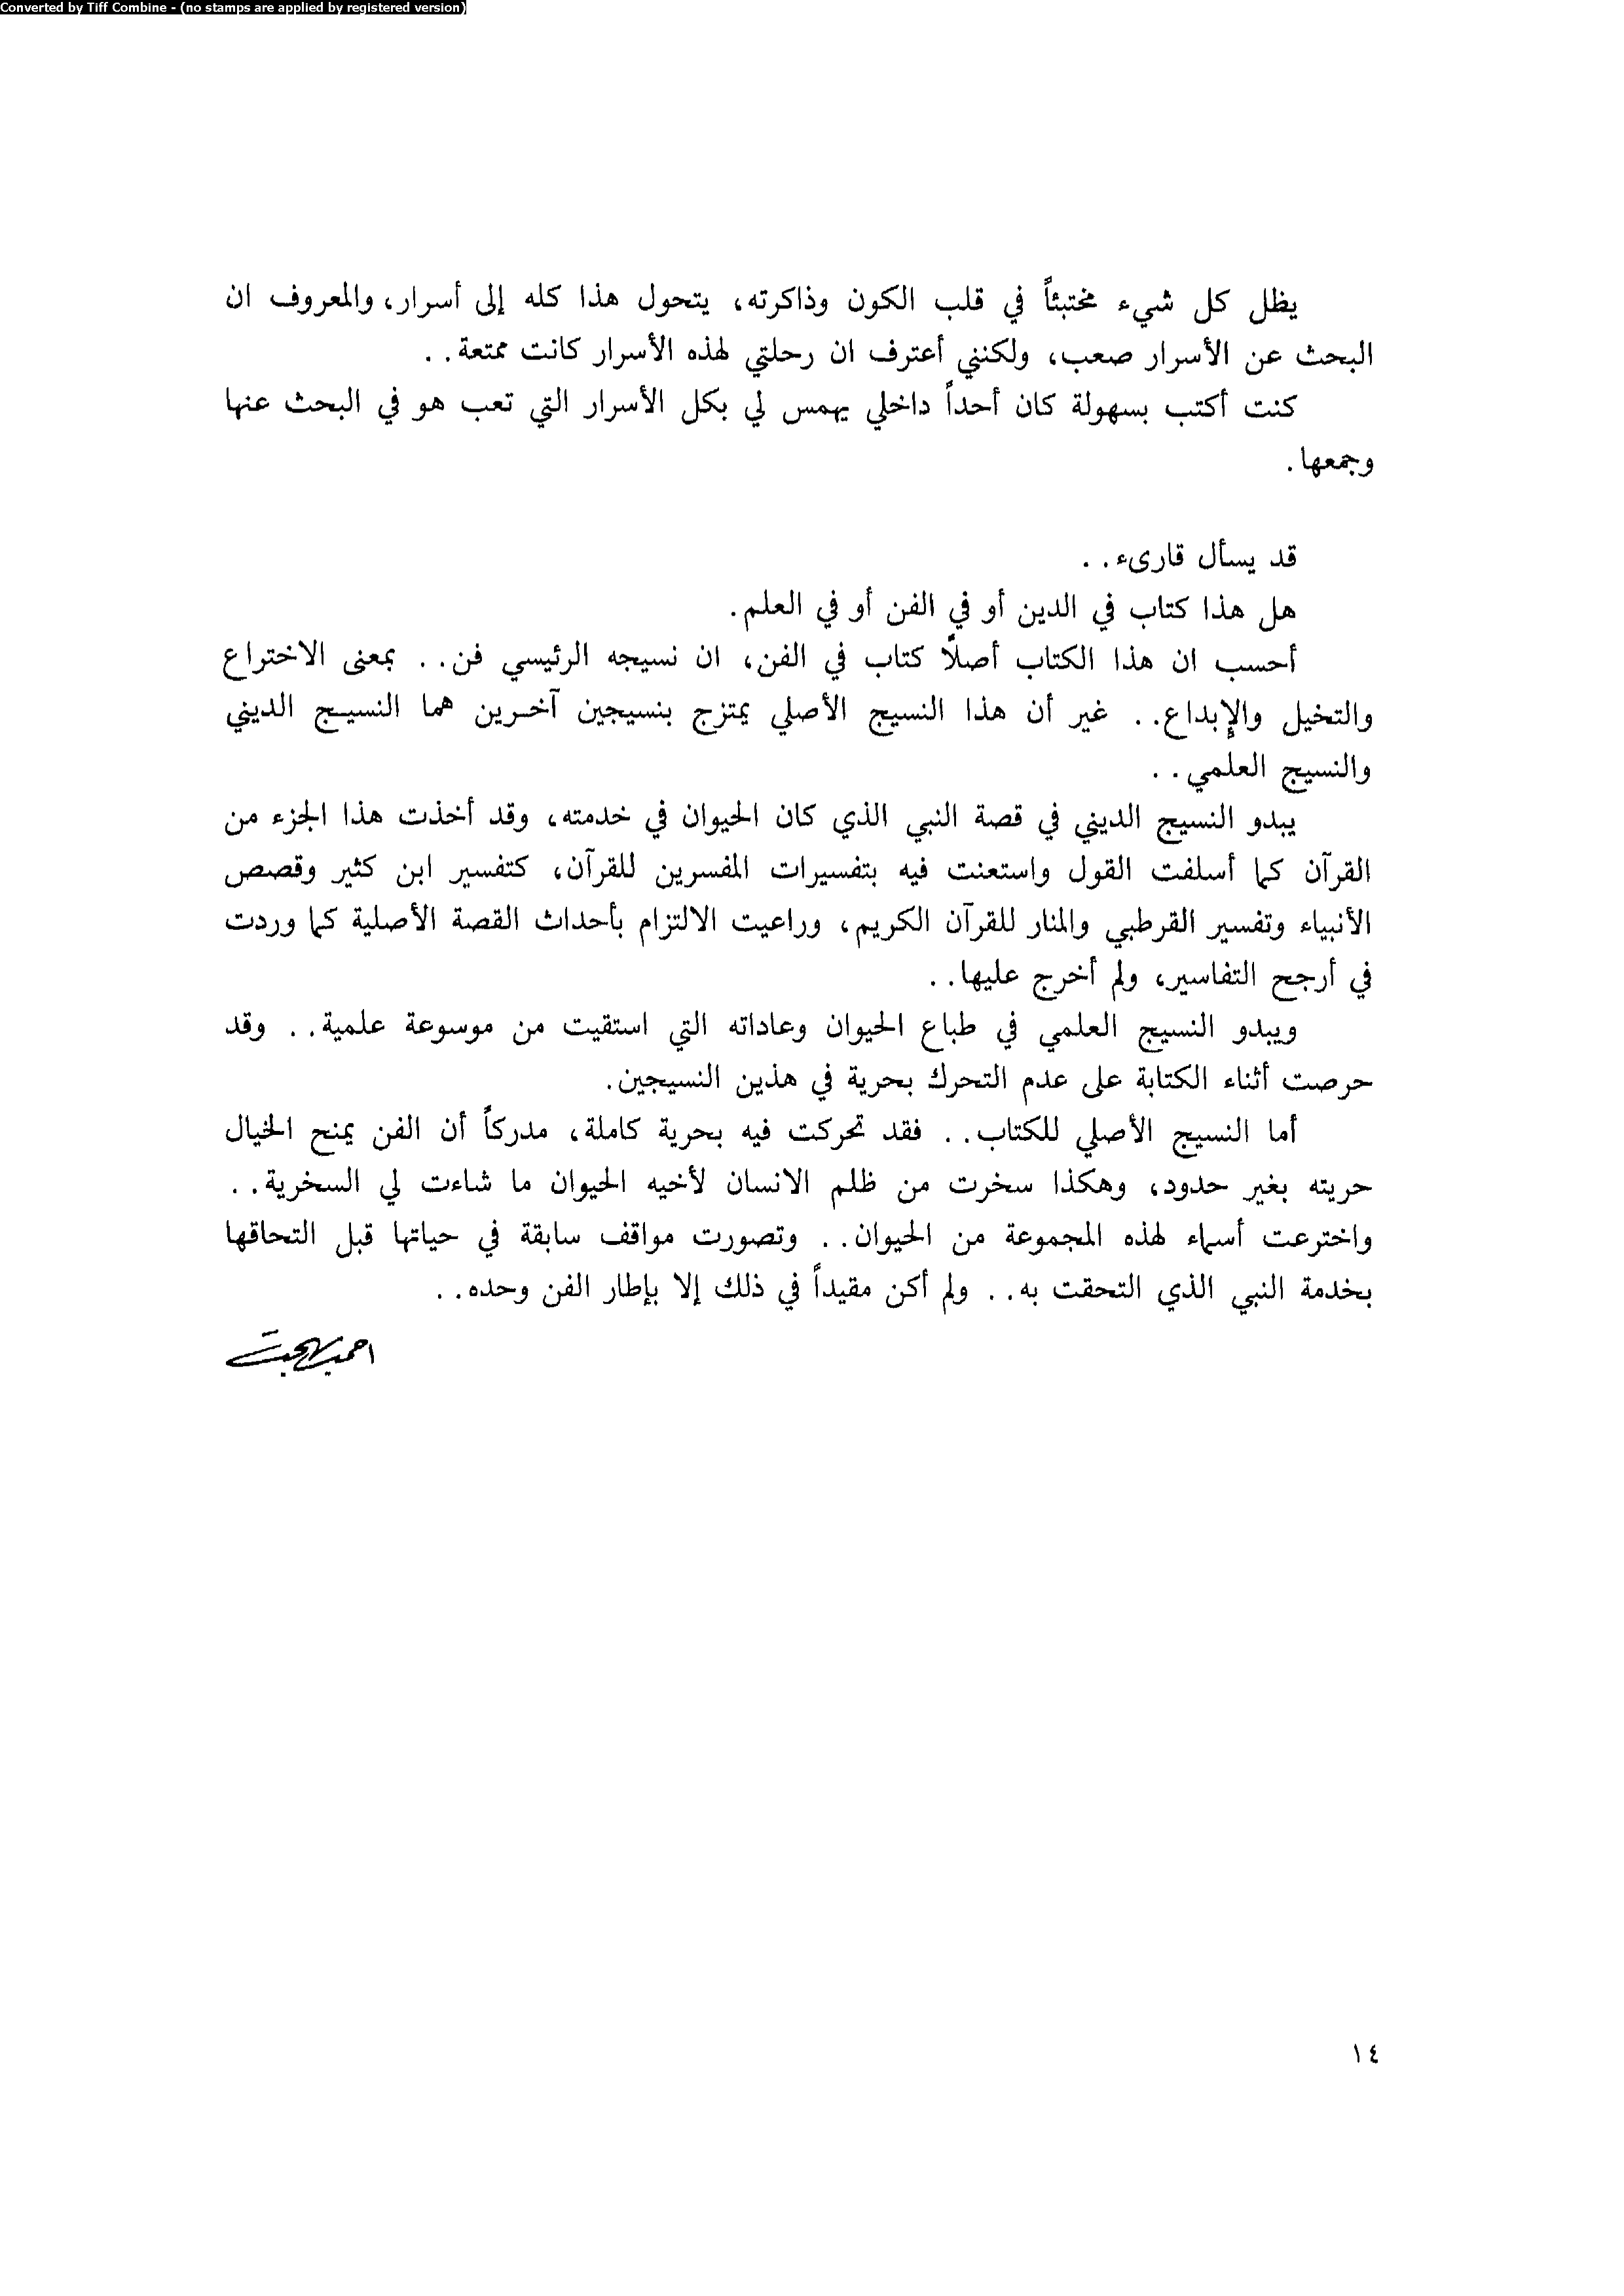 Converted by Tiff Combine - (no stamps are applied by registered version)
يظل كل شيء مختبئاً في قلب الكون وذاكرته، يتحول هذا كله إلى أسرار، والمعروف ان
البحث عن الأسرار صعب، ولكنني أعترف ان رحلتي لهذه الأسرار كانت ممتعة..
كنت أكتب بسهولة كان أحداً داخلي يهمس لي بكل الأسرار التي تعب هو في البحث عنها
وجمعها.
قد يسأل قارىء..
هل هذا كتاب في الدين أو في الفن أو في العلم.
أحسب ان هذا الكتاب أصلاً كتاب في الفن، ان نسيجه الرئيسي فن.. بمعنى الاختراع
والتخيل والإبداع.. غير أن هذا النسيج الأصلي يمتزج بنسيجين آخرين هما النسيج الديني
والنسيج العلمي..
يبدو النسيج الديني في قصة النبي الذي كان الحيوان في خدمته، وقد أخذت هذا الجزء من
القرآن كما أسلفت القول واستعنت فيه بتفسيرات المفسرين للقرآن، كتفسير ابن كثير وقصص
الأنبياء وتفسير القرطبي والمنار للقرآن الكريم، وراعيت الالتزام بأحداث القصة الأصلية كما وردت
في أرجح التفاسير، ولم أخرج عليها..
ويبدو النسيج العلمي في طباع الحيوان وعاداته التي استقيت من موسوعة علمية.. وقد
حرصت أثناء الكتابة على عدم التحرك بحرية في هذين النسيجين.
أما النسيج الأصلي للكتاب.. فقد تحركت فيه بحرية كاملة، مدركاً أن الفن يمنح الخيال
حريته بغير حدود، وهكذا سخرت من ظلم الانسان لأخيه الحيوان ما شاءت لي السخرية..
واخترعت أسماء لهذه المجموعة من الحيوان.. وتصورت مواقف سابقة في حياتها قبل التحاقها
بخدمة النبي الذي التحقت به.. ولم أكن مقيداً في ذلك إلا بإطار الفن وحده..
احمد بهجت
١٤